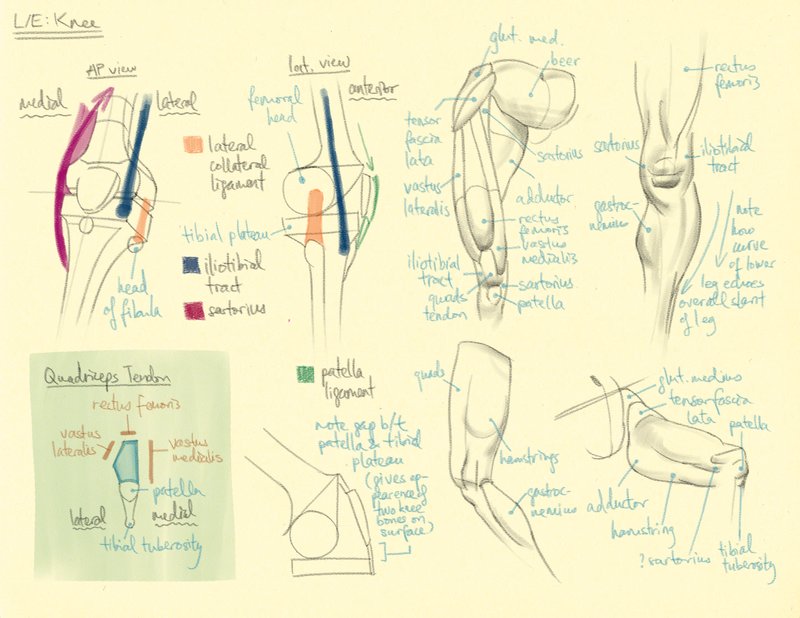 L/E: Knee
AP view
medial
lateral
lateral
collateral
ligament
head
of fibula
iliotibial
tract
sartorius
lat. view
anterior
femoral
head
tibial plateau
patella
ligament
glut. med.
beer
tensor
fascia
lata
sartorius
vastus
lateralis
adductor
rectus
femoris
vastus
medialis
iliotibial
tract
quads
tendon
sartorius
patella
rectus
femoris
sartorius
iliotibial
tract
gastroc-
nemius
note
how
curve
of lower
leg echoes
overall slant
of leg
Quadriceps Tendon
rectus femoris
vastus
lateralis
vastus
medialis
patella
lateral
medial
tibial tuberosity
note gap b/t
patella & tibial
plateau
(gives ap-
pearence of
two knee
bones on
surface)
quads
hamstrings
gastroc-
nemius
glut. medius
tensor fascia
lata
patella
adductor
hamstring
? sartorius
tibial
tuberosity